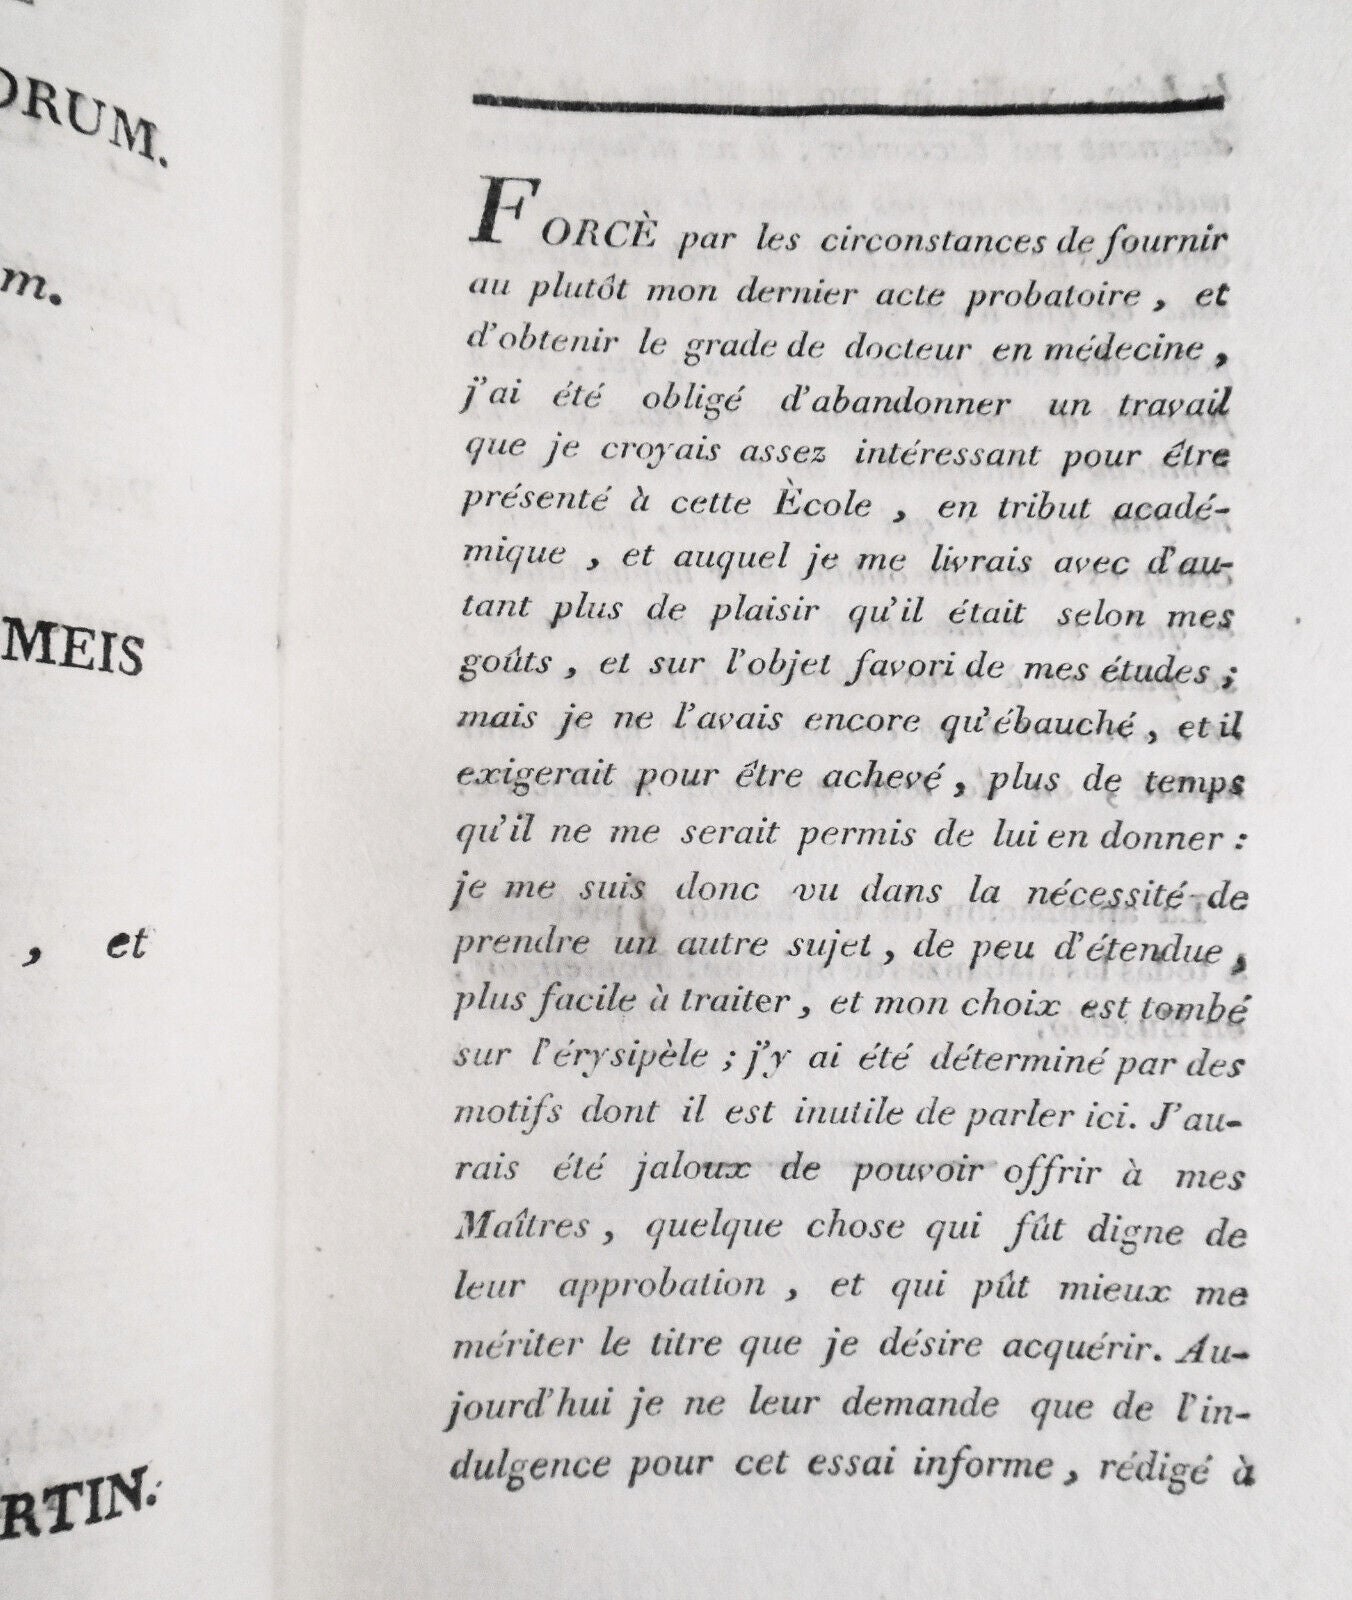 ORUM.
m.
MEIS
, et
RTIN.
FORCÈ par les circonstances de fournir
au plutôt mon dernier acte probatoire , et
d'obtenir le grade de docteur en médecine ,
j'ai été obligé d'abandonner un travail
que je croyais assez intéressant pour être
présenté à cette Ècole , en tribut acadé-
mique , et auquel je me livrais avec d'au-
tant plus de plaisir qu'il était selon mes
goûts , et sur l'objet favori de mes études ;
mais je ne l'avais encore qu'ébauché , et il
exigerait pour être achevé , plus de temps
qu'il ne me serait permis de lui en donner :
je me suis donc vu dans la nécessité de
prendre un autre sujet , de peu d'étendue ,
plus facile à traiter , et mon choix est tombé
sur l'érysipèle ; j'y ai été déterminé par des
motifs dont il est inutile de parler ici. J'au-
rais été jaloux de pouvoir offrir à mes
Maîtres , quelque chose qui fût digne de
leur approbation , et qui pût mieux me
mériter le titre que je désire acquérir. Au-
jourd'hui je ne leur demande que de l'in-
dulgence pour cet essai informe , rédigé à